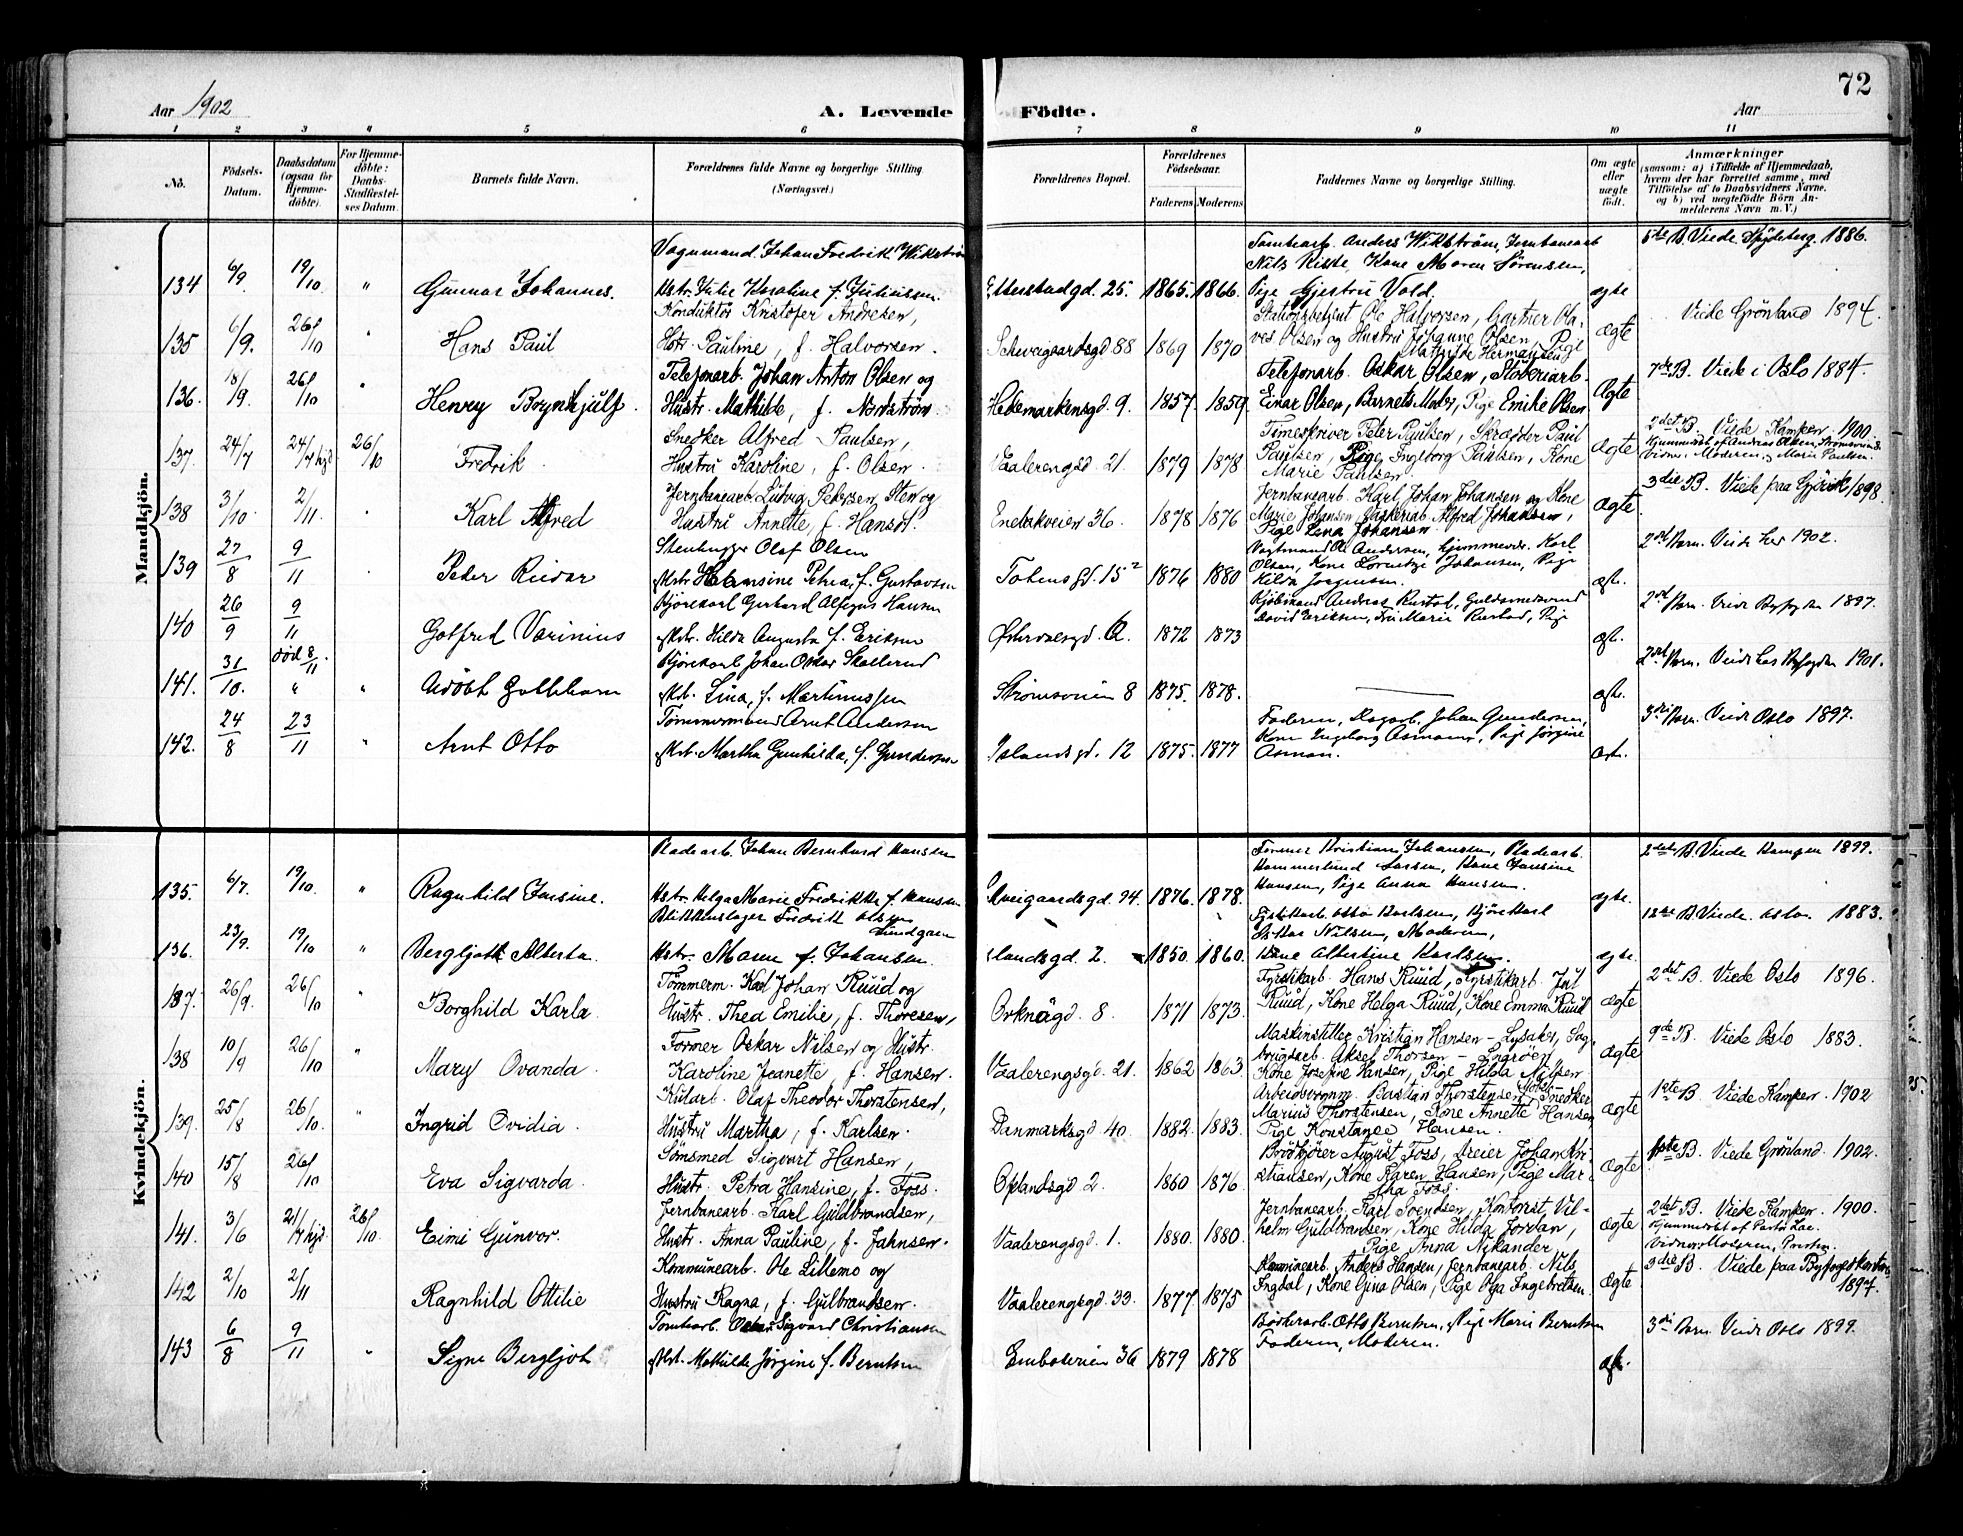 72
Aar 1902
A. Levende Födte.
Aar
1 2 3 4 5 6 7 8 9 10 11
No.
Födsels-Datum.
Daabsdatum (ogsaa for Hjemme-döbte).
For Hjemme-döbte: Daabs-Stadfæstel-ses Datum.
Barnets fulde Navn.
Forældrenes fulde Navne og borgerlige Stilling (Næringsvei.)
Forældrenes Bopæl.
Forældrenes Födselsaar.
Faderens Moderens
Faddernes Navne og borgerlige Stilling.
Om ægte eller uægte födt.
Anmærkninger (saasom: a) i Tilfælde af Hjemmedaab, hvem der har forrettet samme, med Tilföielse af to Daabsvidners Navne, og b) ved uægtefödte Börn An-melderens Navn m. V.)
Mandkjön.
Vognmand Johan Fredrik Wikström
Tomtearb. Anders Wikström, Jernbanearb
5te B. Viede Spydeberg 1886.
Nils Riste, Kone Maren Sörensen,
134 6/9 19/10 " Gunnar Johannes. Hstr. Julie Karoline f. Juliussen. Etterstadgd. 25. 1865. 1866. Pige Gjertru Vold. ægte
Konduktör Kristofer Andresen,
Stationsbetjent Ole Halvorsen, Gartner Ola-
Viede Grønland 1894.
135 6/9. 26/10 " Hans Paul Hstr. Pauline, f. Halvorsen. Schweigaardsgd 88 1869 1870 ves Olsen og Hustru Johanne Olsen, Pige Ægte
Mathilde Hermansen
Telefonarb. Johan Anton Olsen og
Telefonarb. Oskar Olsen, Støberiarb.
7de B. Viede i Oslo 1884.
136. 18/9. 26/10 " Henry Brynhjulf. Hustr. Mathilde, f. Nordström Hedemarkensgd. 9. 1857. 1859. Einar Olsen, Barnets Moder, Pige Emilie Olsen Ægte
Snedker Alfred Paulsen,
Timeskriver Peter Paulsen, Skrædder Paul
2det B. Viede Kampen 1900.
137. 24/7 24/7 hjd 26/10 Fredrik. Hustru Karoline, f. Olsen. Vaalerengsgd. 21. 1879 1878 Paulsen, Pige Ingeborg Paulsen, Kone Ægte
Marie Paulsen
Vidner: Moderen, Marie Paulsen.
Jernbanearb. Ludvig Pedersen Sten og
Jernbanearb. Karl Johan Johansen og Kone
3die B. Viede paa Gjövik 1898.
138 3/10. 2/11. Karl Alfred Hustru Annette, f. Hansen. Enebakveien 36. 1878 1876 Marie Johansen, Alfred Johansen, Ægte.
Pige Lina Johansen.
Stenhugger Olaf Olsen
Vogtmand Ole Andersen, Karl
2det Barn. Viede her 1902.
139 27/8 9/11 Peder Reidar Hstr. Hansine Petrea, f. Gustavsen Totensgd. 15² 1876 1880 Olsen, Kone Johansen, Pige
Hilda Jörgensen. ægte.
Kjörekarl Gerhard Alfegus Hansen
Andreas Rustad,
2det Barn. Viede Byfogden 1897.
140 26/9 9/11 Gotfred Varinius Hstr. Hilda Augusta f. Eriksen Østerdalsgd. 1872 1873 David Eriksen, Fru Marie Rustad, Pige ægte.
død 8/11.
Kjörekarl Johan Oskar Skollerud
2det Barn. Viede hos Byfogden 1901.
141. 31/10. " " Udöbt Guttebarn Hstr. Lina, f. Martinussen Strömsveien 8 1875. 1878. ægte.
Tömmermand Arnt Andersen
Faderen, Johan Gundersen,
3die Barn. Viede Oslo 1897.
142. 24/8 23/11 " Arnt Otto Hstr. Martha Gunhilda, f. Gundersen Islandsgd. 12 1875. 1877 Kone Ingeborg Asman, Pige Jørgine
Asman. ægte.
Kvindekjön.
Pladearb. Johan Bernhard Hansen
Former Kristian Johansen, Pladearb.
2det B. Viede Kampen 1899.
Hammerlund Larsen, Kone Jansine
135. 6/7. 19/10. " Ragnhild Jansine. Hstr. Helga Marie Fredrikke f. Hansen Schweigaardsgd. 94. 1876. 1878. Hansen, Pige Anna Hansen. ægte.
Blikkenslager Fredrik Olsen Lundgren
Fyrstikarb. Otto Karlsen, Kjörekarl
12te B. Viede. Oslo. 1883.
136. 23/9. 19/10 " Bergljoth Alberta. Hstr. Maren f. Johansen Islandsgd. 2. 1850. 1860. Oskar Nilsen, Moderen,
Kone Albertine Karlsen. ægte.
Tömmerm. Karl Johan Ruud og
Fyrstikarb. Hans Ruud, Fyrstikarb. Jul
2det B. Viede Oslo 1896.
137. 26/9. 26/10 " Borghild Karla. Hustr. Thea Emilie, f. Thoresen, Orknögd. 8. 1871 1873. Ruud, Kone Helga Ruud, Kone Emma Ruud Ægte
Former Oskar Nilsen og Hustr.
Maskinstiller Kristian Hansen - Lysaker, Sag-
9de B. Viede Oslo 1883.
138 10/9 26/10 " Mary Ovanda. Karoline Jeanette, f. Hansen. Vaalerengsgd. 21. 1862 1863 brugsarb. Aksel Thorsen - Ægte
Kone Josefine Hansen, Pige Hilda Nilsen
Kularb. Olaf Theodor Thorstensen,
Arbeidsformm. Bastian Thorstensen, Snedker
1ste B. Viede Kampen. 1902
139. 25/8 26/10. " Ingrid Ovidia. Hustru Martha, f. Karlsen. Danmarksgd 40. 1882. 1883. Marius Thorstensen, Kone Annette Hansen Ægte
Pige Konstance Hansen.
Sömsmed Sigvart Hansen,
Brödkjörer August Foss, Dreier Johan Kri-
1ste B. Viede Grønland 1902.
140 15/8 26/10 " Eva Sigvarda. Hustr. Petra Hansine, f. Foss. Oplandsgd 2. 1860 1876. stiansen, Kone Karen Hansen, Pige Mar-
tha Foss. Ægte
Jernbanearb. Karl Guldbrandsen,
Jernbanearb. Karl Svendsen, Kontorist Vil-
2det B. Viede Kampen. 1900.
141. 3/6 21/7 hjd. 26/10. Eimi Gunvor. Hustr. Anna Pauline, f. Jahnsen. Vaalerengsgd. 1. 1880. 1880. helm Guldbrandsen, Kone Hilda Jordan, Ægte
Pige Anna Nikander
Kommunearb. Ole Lillemo og
Kommunearb. Anders Hansen, Jernbanearb. Nils
3die B. Viede paa Byfogedkontoret 1897.
142 2/10 2/11 Ragnhild Ottilie Hustru Ragna, f. Gulbrandsen. Vaalerengsgd. 33. 1877. 1875 Ingdal, Kone Gina Olsen, Pige Olga Ingebretsen. Ægte
Tomtearb. Oskar Sigvard Christiansen
Bödkerarb. Otto Berntsen, Pige Marie Berntsen
3die Barn Viede Oslo 1899.
143 6/8 9/11 " Signe Bergljot Hstr. Mathilde Jørgine f. Berntsen 36 1879 1878 Faderen, Moderen. ægte.